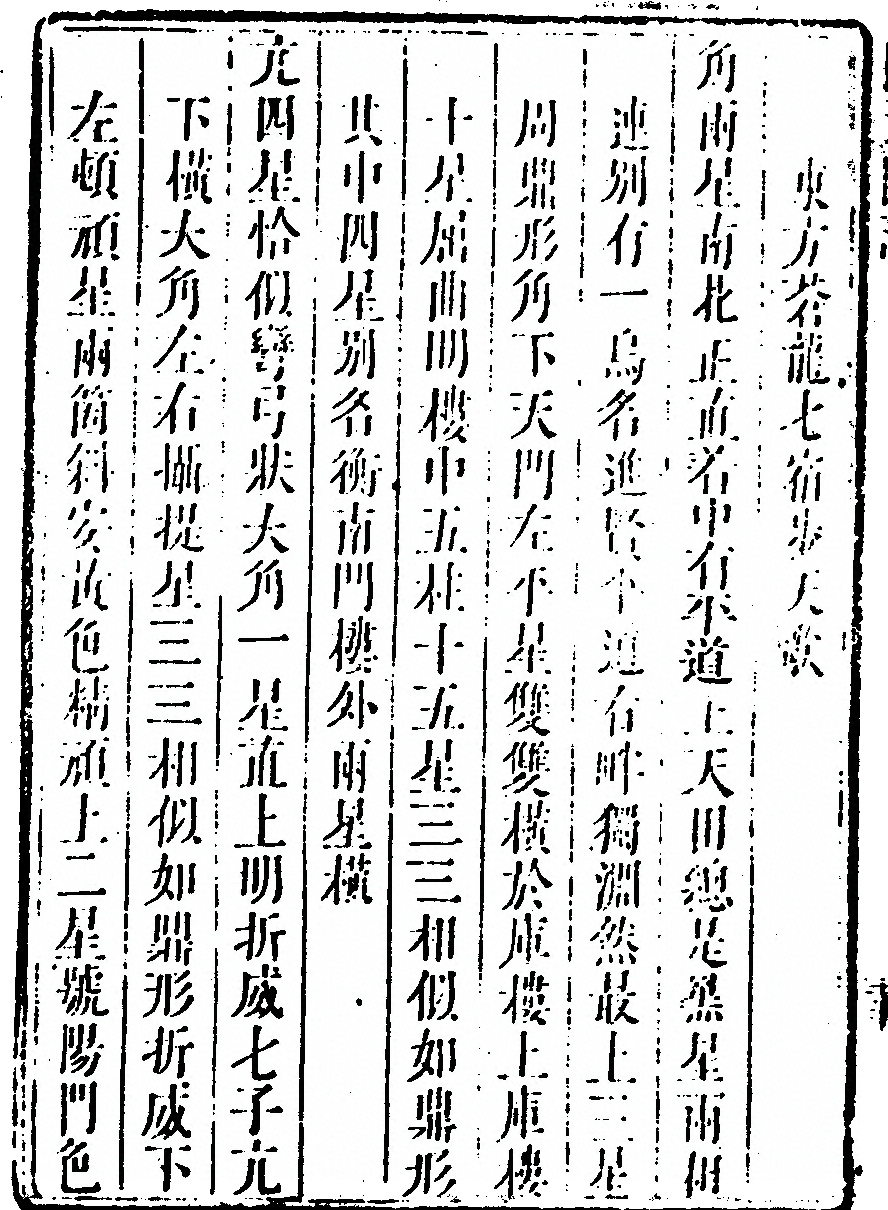 東方蒼龍七宿步天歌
角兩星南北正直着中有平道上天田總是黑星兩相
連別有一烏名進賢平道右畔獨淵然最上三星
周鼎形角下天門左平星雙雙橫於庫樓上庫樓
十星屈曲明樓中五柱十五星三三相似如鼎形
其中四星別名衡南門樓外兩星橫
亢四星恰似彎弓狀大角一星直上明折威七子亢
下橫大角左右攝提星三三相似如鼎形折威下
左頓頑星兩箇斜安黃色精頑上二星號陽門色